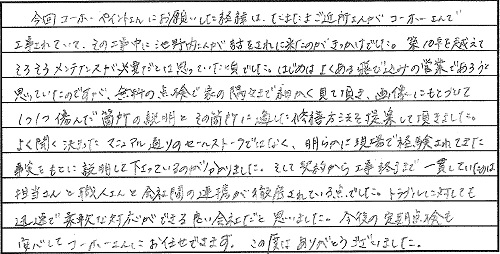 今回コーホーペイントさんにお願いした経緯は、たまたまご近所さんがコーホーさんで
工事されていて、その工事中に池野内さんが話をされに来たのがきっかけでした。築10年を越えて
そろそろメンテナンスが必要だとは思っていた頃でした。はじめはよくある飛び込みの営業であろうと
思っていたのですが、無料の点検で家の隅々まで細かく見て頂き、画像にもとづいて
1つ1つ傷んだ箇所の説明とその箇所に適した修繕方法を提案して頂きました。
よく聞く決まったマニュアル通りのセールストークではなく、明らかに現場で経験されてきた
事実をもとに説明して下さっているのが分かりました。そして契約から工事終了まで一貫していたのは
担当さんと職人さんと会社間の連携が徹底されている点でした。トラブルに対しても
迅速で柔軟な対応ができる良い会社だと思いました。今後の定期点検も
安心してコーホーさんにお任せできます。この度はありがとうございました。